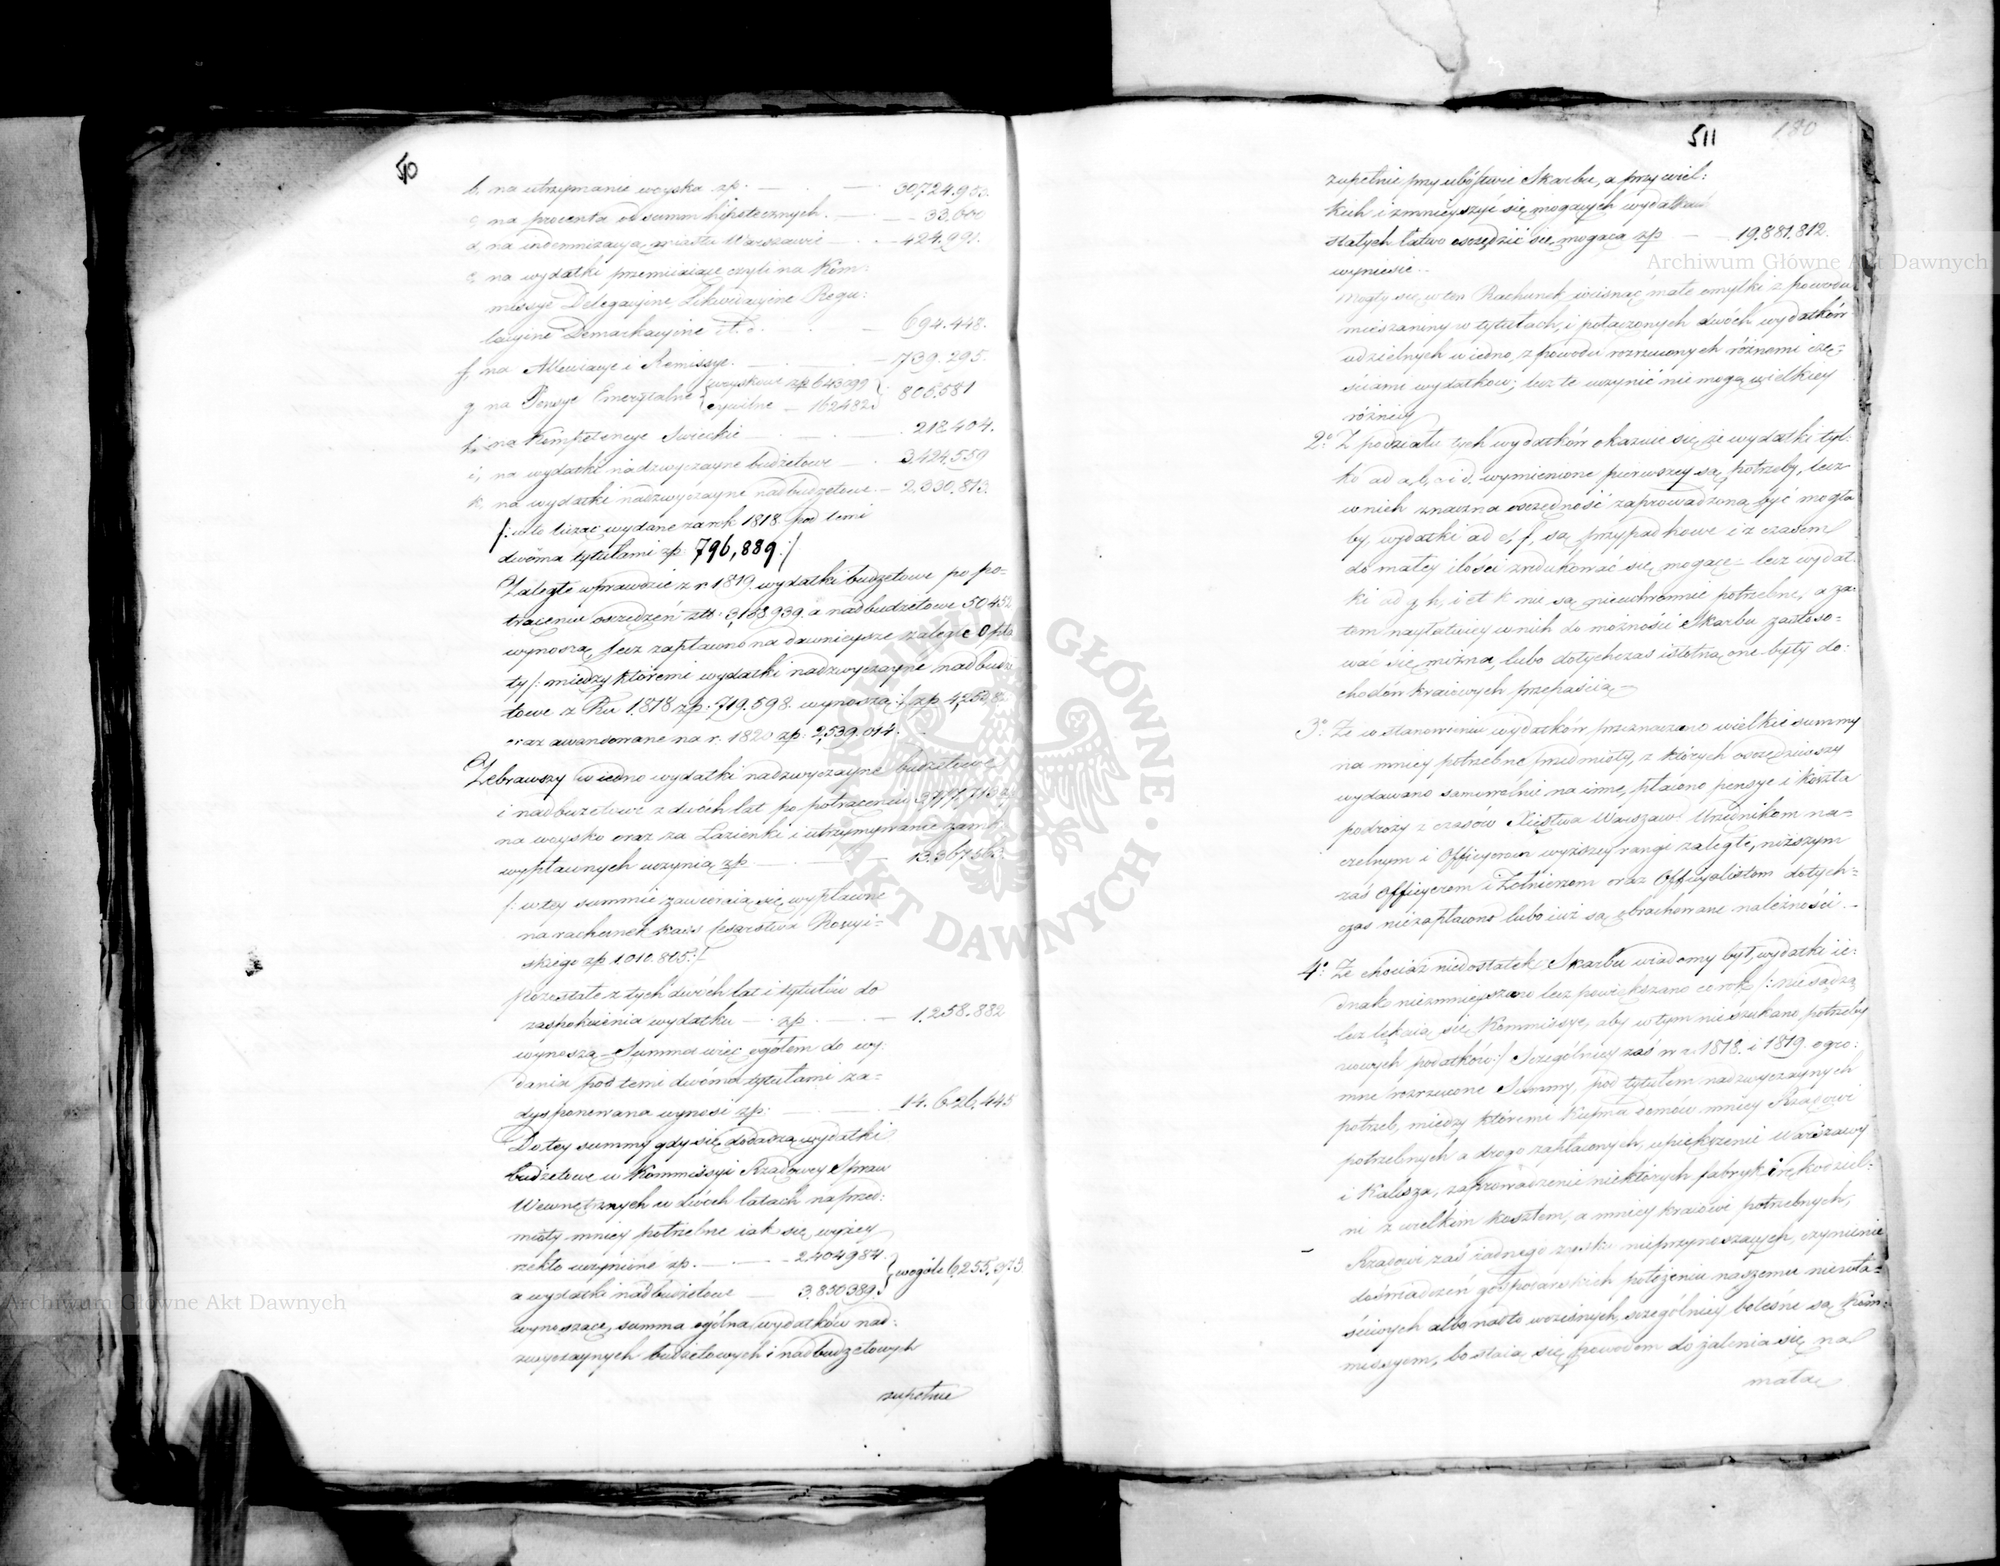 510
b, na utrzymanie woyska zp. — 30,724,950.
c, na procenta od summ hipotecznych. — 33.000
d, na indemnizacyą miastu Warszawie — 424.991.
e, na wydatki przemiiaiące, czyli na Kom:
missye Delegacyine, Likwidacyine Regu:
lacyine Demarkacyine etc. — 694.448.
f, na Allewiacye i Remissye. — 1739.295.
g, na Pensye Emerytalne {woyskowe zp 643099 cywilne — 162482} 805.581
h, na Kompetencye Swieckie — 218.404.
i, na wydatki nadzwyczayne budżetowe — 3,424,559
k, na wydatki nadzwyczayne nadbudżetowe. — 2,330.813.
/: w to licząc wydane za rok 1818. pod temi
dwoma tytułami zp. 796,889:/
Zaległe wprawdzie z r 1819. wydatki budżetowe po po=
trąceniu oszczędzeń złł: 3,188,939. a nadbudżetowe 50452
wynoszą, lecz zapłacono na dawnieysze zaległe Opła
ty /: między któremi wydatki nadzwyczayne nadbudże
towe z Ru 1818 zp: 719.598. wynoszą :/ zp 4,250,8
oraz awansowane na r. 1820 zp: 2,539.014.
Zebrawszy w iedno wydatki nadzwyczayne budżetowe
i nadbudżetowe z dwóch lat po potrąceniu
na woysko oraz za Łazienki i utrzymywanie zamk
wypłacnych uczynią zp — 13.367.563
/: w tey summie zawieraią się wypłacone
na rachunek kass Cesarstwa Rossyi=
skiego zp 1,010.805:/
pozostałe z tych dwóch lat i tytułów do
zaspokoienia wydatku — zp — 1,258.882
wynoszą — Summa więc ogółem do wy:
dania pod temi dwoma tytułami za=
dysponowana wynosi zp: — 14.626,445
Do tey summy gdy się dodadzą wydatki
budżetowe w Kommissyi Rządowey Spraw
Wewnętrznych w dwóch latach na przed:
mioty mniey potrzebne iak się wyżey
rzekło uczynione zp. — 2,404984.
a wydatki nadbudżetowe — 3.850389. } wogóle 6,255,373
wynoszące, summa ogólna wydatków nad:
zwyczaynych budżetowych i nadbudżetowych
zupełnie
511
180
zupełnie przy ubóstwie Skarbu, a przy wiel:
kich i zmnieyszyć się mogących wydatkach
stałych łatwo oszczędzić się mogąca zp — 19.881.812.
wyniesie.
Mogły się w ten Rachunek wcisnąć małe omyłki z powodu
mieszaniny w tytułach, i połączonych dwóch wydatków
udzielnych w iedno, z powodu rozrzuconych różnemi czę=
ściami wydatków; lecz te uczynić nie mogą wielkiey
różnicy
2o. Z podziału tych wydatków okazuie się, że wydatki tyl:
ko ad a, b, c i d. wymienione pierwszey są potrzeby, lecz
w nich znaczna oszczędność zaprowadzoną być mogła
by, wydatki ad e, f, są przypadkowe i z czasem
do małey ilości zredukować się mogące — lecz wydat:
ki ad g, h, i et k nie są nieuchronnie potrzebne, a za:
tem nayłatwiey w nich do możności Skarbu zastoso=
wać się można, lubo dotychczas istotną one były do:
chodów kraiowych przepaścią —
3o. Że w stanowieniu wydatków przeznaczano wielkie summy
na mniey potrzebne przedmioty, z których oszczędziwszy
wydawano samowolnie na inne, płacono pensye i koszta
podróży z czasów Xięstwa Warszaw: Urzędnikom na=
czelnym i Officyerom wyższey rangi zaległe, niższym
zaś Officyerom i Żołnierzom oraz Officyalistom dotych=
czas niezapłacono lubo iuż są obrachowane należności. —
4o. Że chociaż niedostatek Skarbu wiadomy był, wydatki ie:
dnak niezmnieyszano lecz powiększano co rok /: nie sądzą
lecz lękaią się Kommissye, aby w tym nie szukano potrzeby
nowych podatków :/ Szczególniey zaś w r. 1818. i 1819. ogro:
mne rozrzucone Summy, pod tytułem nadzwyczaynych
potrzeb, między któremi Kupna domów mniey Rządowi
potrzebnych a drogo zapłaconych, upiększenie Warszawy
i Kalisza, zaprowadzenie niektórych fabryk i rękodziel:
ni z wielkim kosztem, a mniey kraiowi potrzebnych,
Rządowi zaś żadnego zysku nieprzynoszących, czynienie
doświadczeń gospodarskich położeniu naszemu niewła=
ściwych albo nadto wczesnych, szczególniey bolesne są Kom:
missyom, bo staią się powodem do żalenia się na
małą
Archiwum Główne Akt Dawnych
Archiwum Główne Akt Dawnych
ARCHIWUM GŁÓWNE · AKT DAWNYCH ·